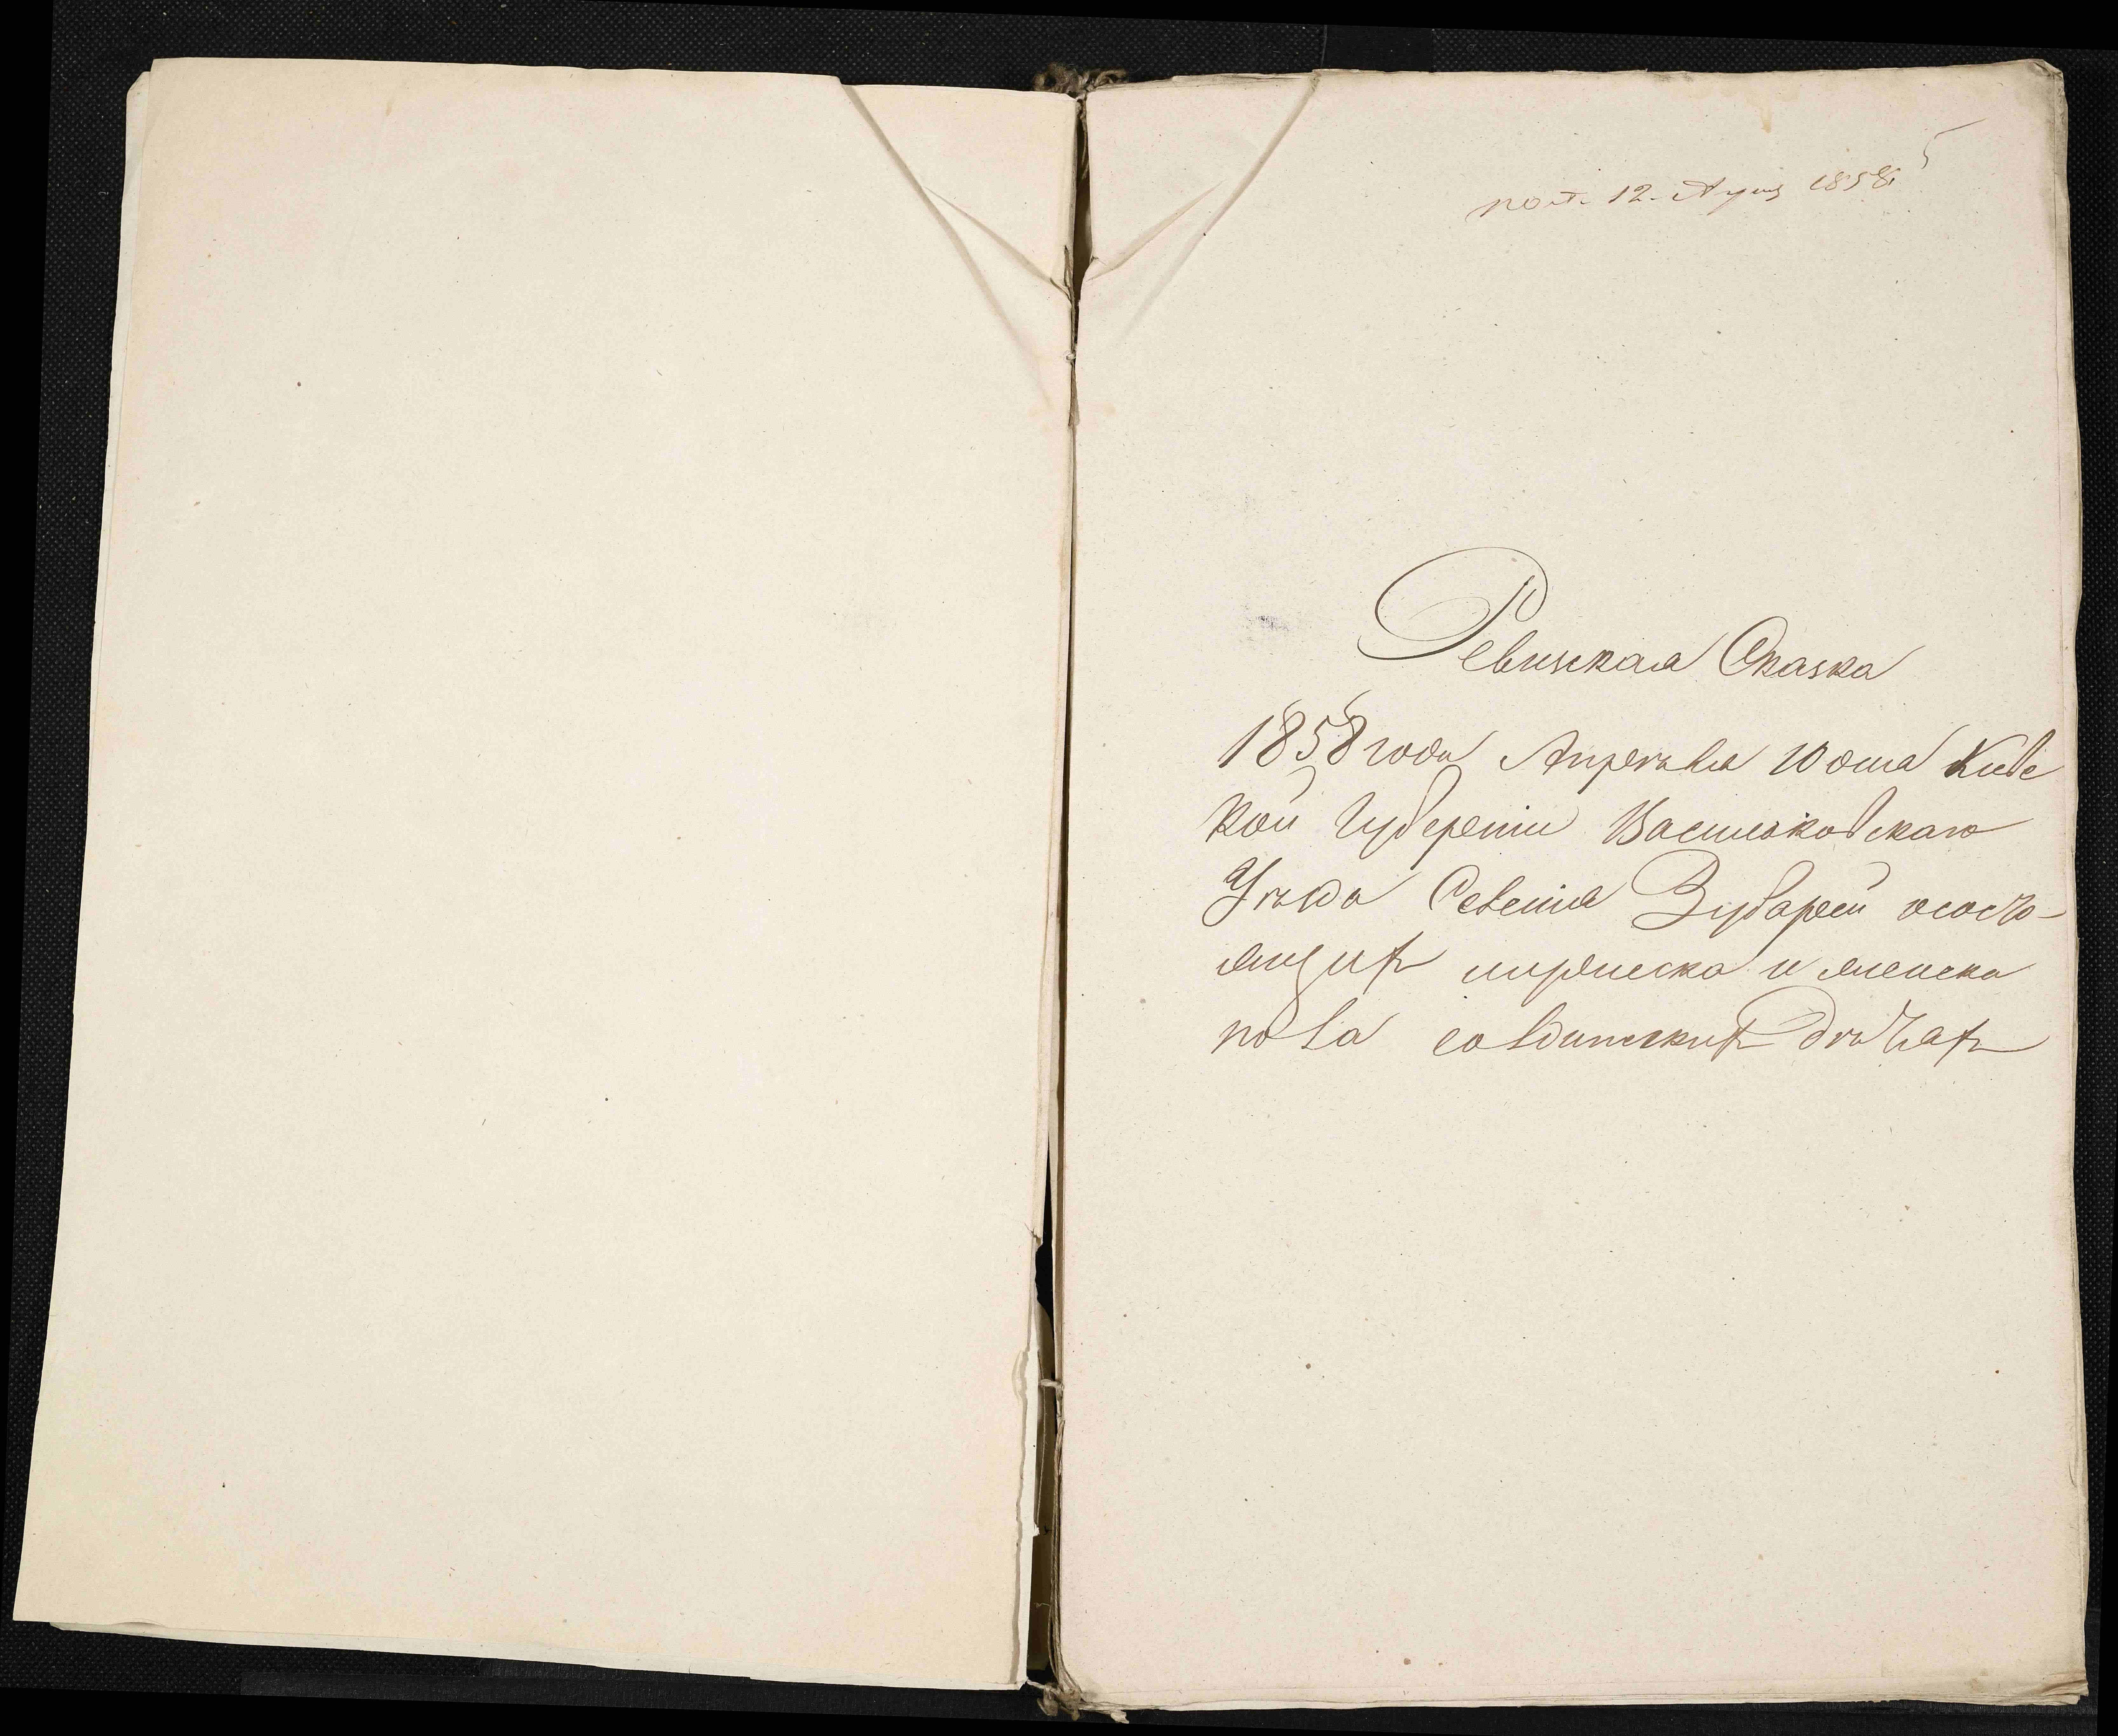 5
пол. 12. Апр 1858
Ревизская Сказка
1858 года Апреля 10 дня Киевс
кой Губернии Васильковскаго
Уѣзда Селения Зубарей ососто-
ящих мужеска и женска
пола солдатских дѣтях